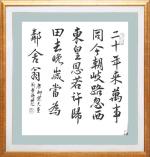 二十年來萬事
同今朝岐路忽西
東皇恩若許歸
田去晚歲當為
鄰舍翁